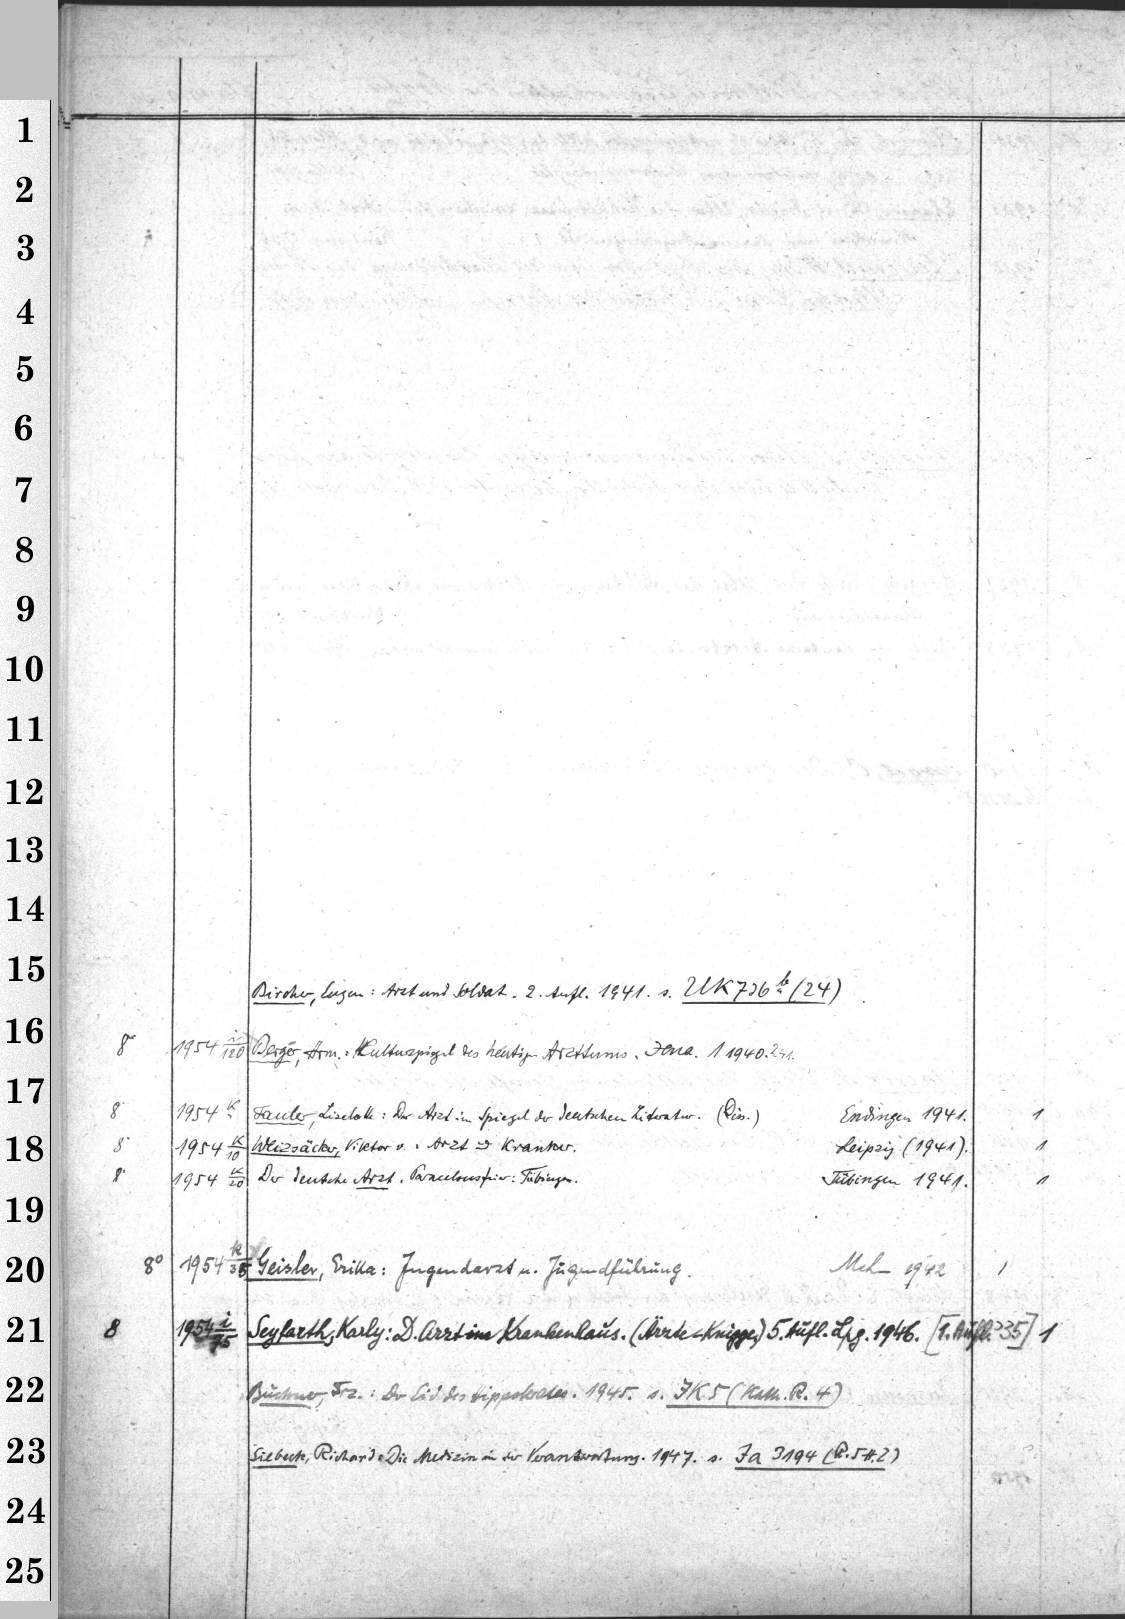 1
2
3
4
5
6
7
8
9
10
11
12
13
14
15
Bircher, Eugen: Arzt und Soldat. 2. Aufl. 1941. s. UK 736 b (24)
16
8° 1954 i/120 Berger, Hrm.: Kulturspiegel des heutigen Arzttums. Jena. 1 1940. 2 41.
17
8° 1954 k Fauler, Liselott: Der Arzt im Spiegel der deutschen Literatur. (Diss.) Endingen 1941. 1
18
8° 1954 k/10 Weizsäcker, Viktor v.: Arzt u Kranker. Leipzig (1941). 1
8° 1954 k/20 Der deutsche Arzt. Paracelsusfeier: Tübingen. Tübingen 1941. 1
19
20
8° 1954 k/35 Geisler, Erika: Jugendarzt u. Jugendführung. 1942 1
21
8 1954 i/75 Seyfarth, Karly: D. Arzt im Krankenhaus. (Ärzte-Knigge) 5. Aufl. Lpg. 1946. [1. Aufl. 35] 1
22
Büchner, Frz.: Der Eid des Hippokrates. 1945. s. JK 5 (Kath. R. 4)
23
Siebeck, Richard: Die Medizin in der Verantwortung. 1947. s. Ja 3194 (R. 5 H. 2)
24
25